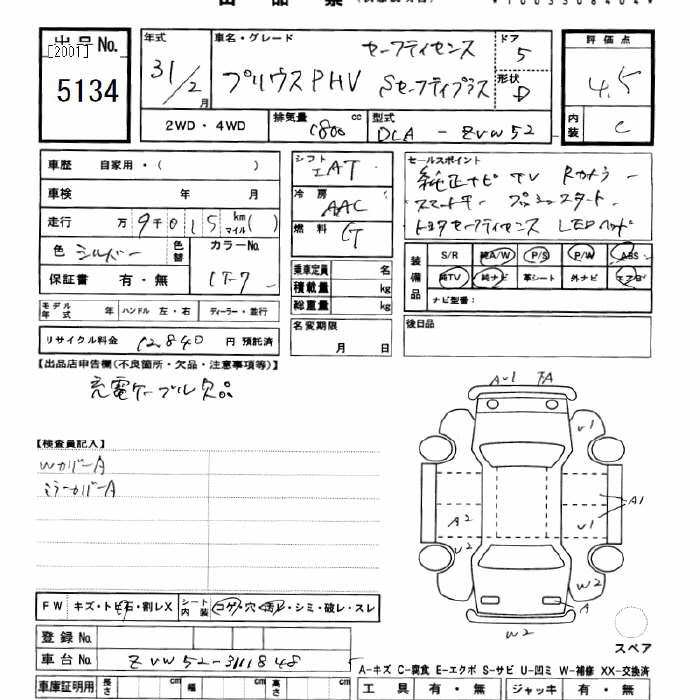 出品票
[2001]
出品No.
5134
年式
31/2
月
車名・グレード
セーフティセンス
プリウスPHV Sセーフティプラス
ドア
5
形状
D
評価点
4.5
内装
C
2WD・4WD
排気量
1800 cc
型式
DLA - ZVW52
車歴 自家用・( )
車検 年 月
走行 万 9千 0 1 5 km マイル( )
色 シルバー
色替
カラーNo.
1F7
保証書 有・無
モデル年式 年
ハンドル 左・右
ディーラー・並行
リサイクル料金 12840 円 預託済
シフト
IAT
冷房
AAC
燃料
G
乗車定員 名
積載量 kg
総重量 kg
名変期限
月 日
セールスポイント
純正ナビ TV Rカメラ
スマートキー プッシュスタート
トヨタセーフティセンス LEDヘッド
装備品
S/R 純A/W P/S P/W ABS
純TV 純ナビ 革シート 外ナビ エアB
ナビ型番:
後日品
【出品店申告欄(不良箇所・欠品・注意事項等)】
充電ケーブル欠品
【検査員記入】
WカバーA
ミラーカバーA
AU1 FA
U1
A1
A2
U1
U2
W2
A
W2
スペア
FW キズ・トビ石・割レX
シート内装 コゲ・穴・汚レ・シミ・破レ・スレ
登録No.
車台No. ZVW52-3111848
車庫証明用 長さ cm 幅 cm 高さ cm
A-キズ C-腐食 E-エクボ S-サビ U-凹ミ W-補修 XX-交換済
工具 有・無 ジャッキ 有・無